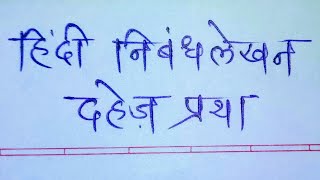 हिंदी निबंधलेखन
दहेज़ प्रथा